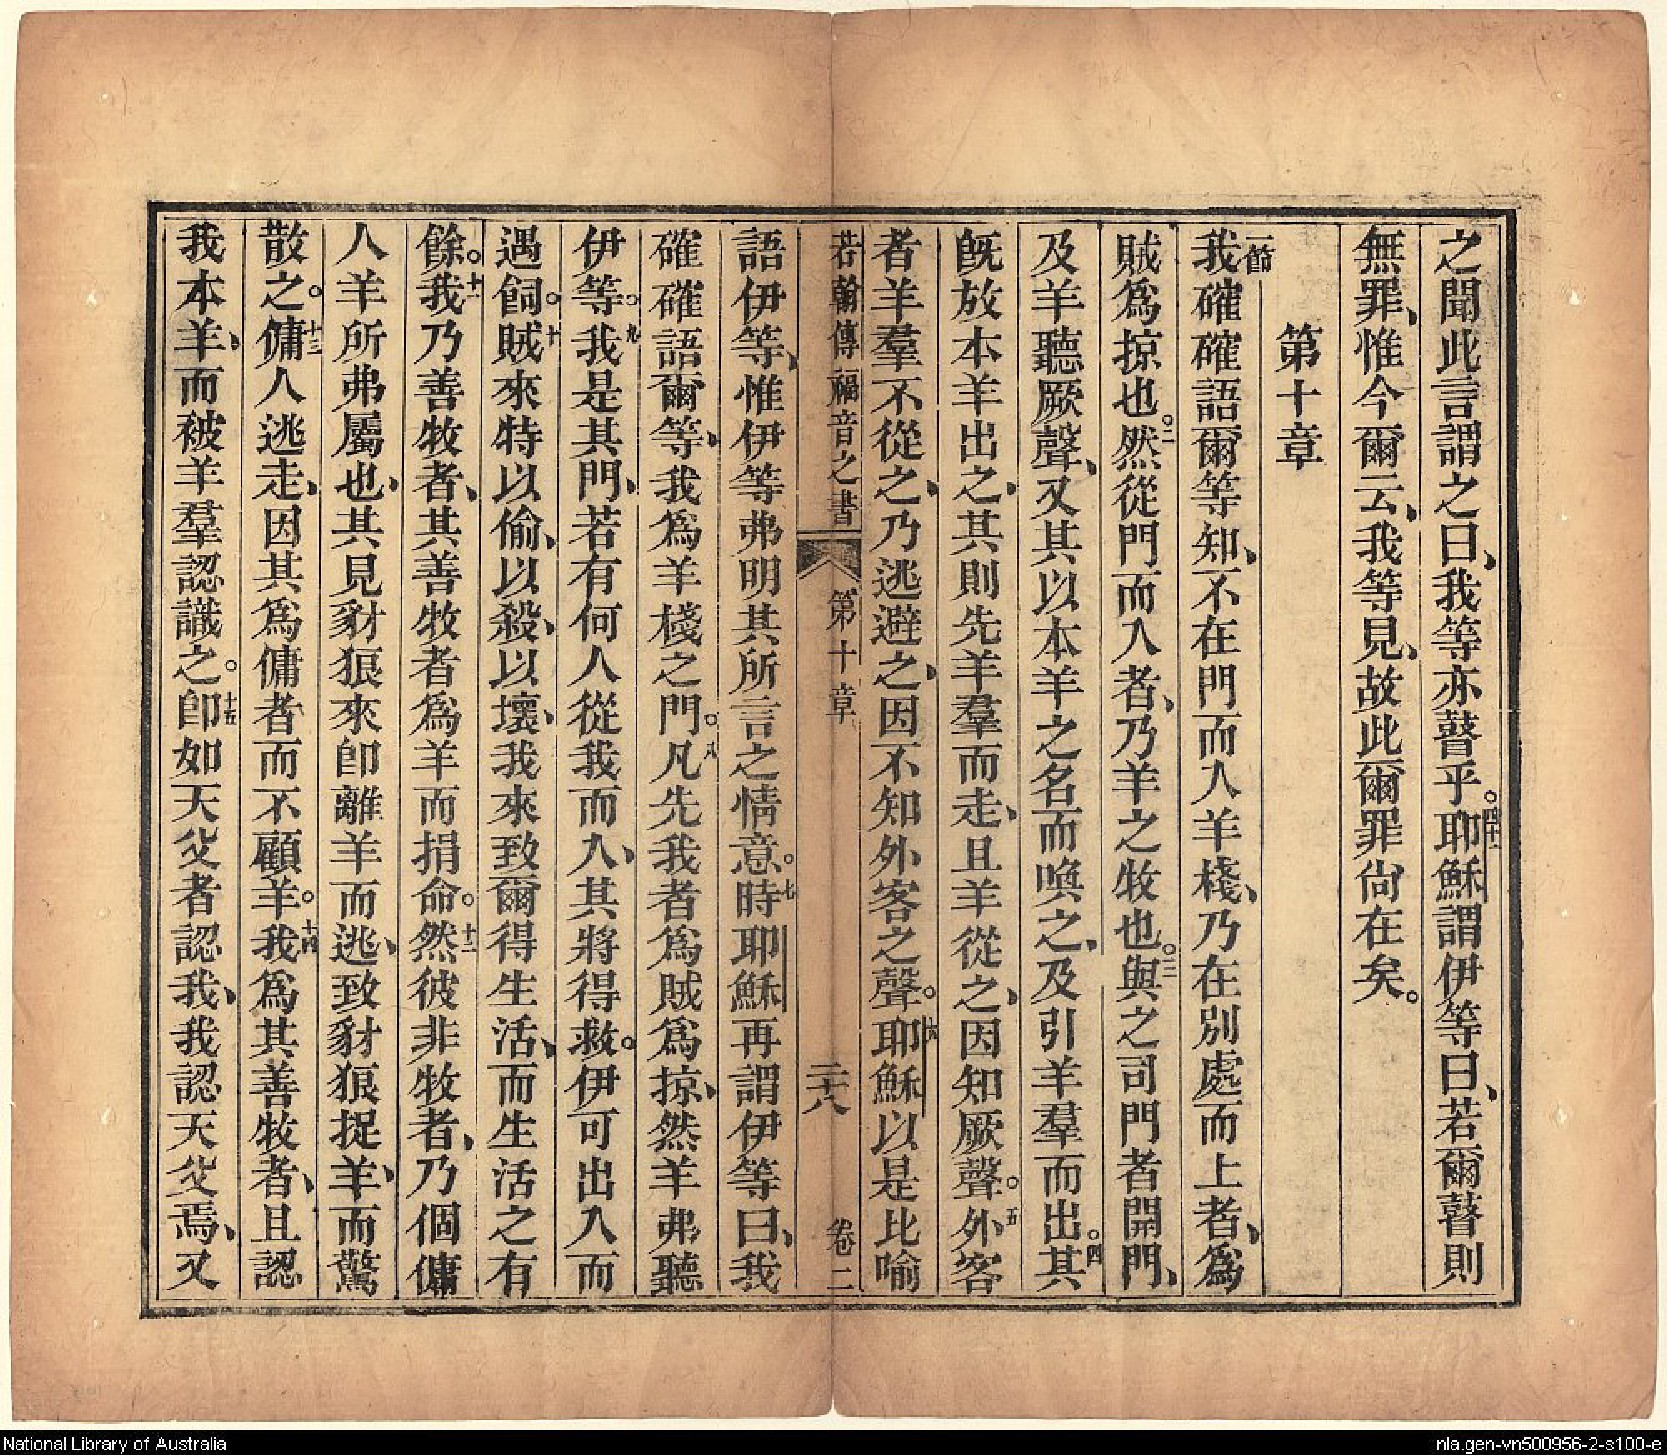 之聞此言謂之曰、我等亦瞽乎。四十一耶穌謂伊等曰、若爾瞽則
無罪、惟今爾云、我等見、故此爾罪尙在矣。
第十章
一節我確確語爾等知、不在門而入羊棧、乃在別處而上者、爲
賊爲掠也。二然從門而入者、乃羊之牧也。三與之司門者開門、
及羊聽厥聲、又其以本羊之名而喚之、及引羊羣而出。四其
旣放本羊出之、其則先羊羣而走、且羊從之、因知厥聲。五外客
者羊羣不從之、乃逃避之、因不知外客之聲。六耶穌以是比喻
若翰傳福音之書 第十章 二十八 卷二
語伊等、惟伊等弗明其所言之情意。七時耶穌再謂伊等曰、我
確確語爾等、我爲羊棧之門。八凡先我者爲賊爲掠、然羊弗聽
伊等。九我是其門、若有何人從我而入、其將得救。伊可出入而
遇飼。十賊來特以偷、以殺、以壞、我來致爾得生活、而生活之有
餘。十一我乃善牧者、其善牧者爲羊而捐命。十二然彼非牧者、乃個傭
人羊所弗屬也、其見豺狼來卽離羊而逃、致豺狼捉羊、而驚
散之。十三傭人逃走、因其爲傭者而不顧羊。十四我爲其善牧者、且認
我本羊、而被羊羣認識之。十五卽如天父者認我、我認天父焉、又
National Library of Australia
nla.gen-vn500956-2-s100-e